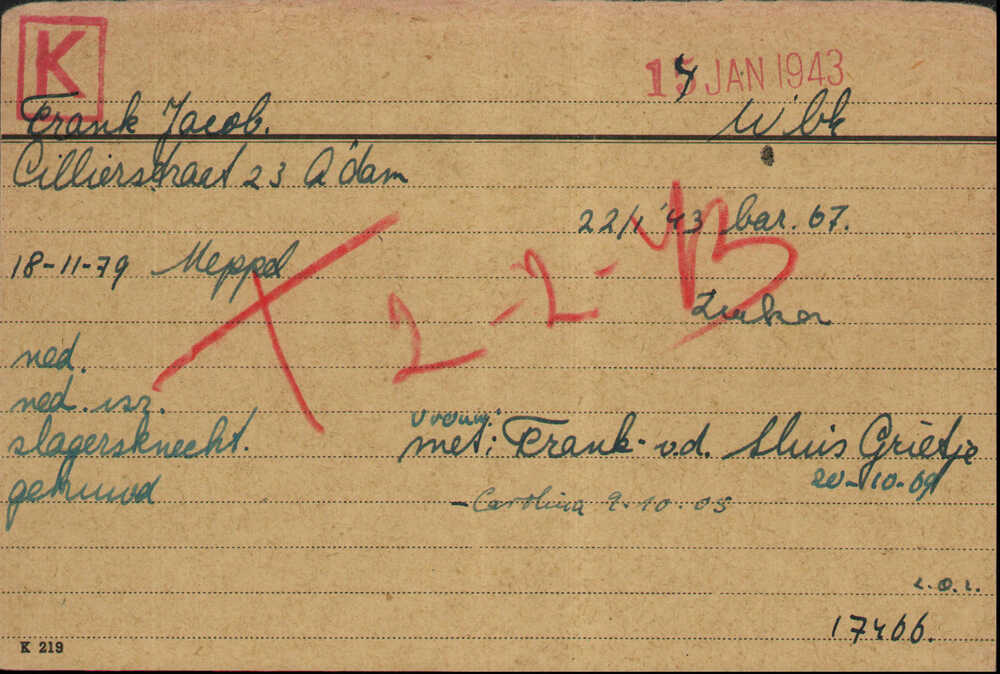 K
14 JAN 1943
Frank Jacob.
Wbk
Cillierstraat 23 A'dam
22/1 '43 bar. 67.
18-11-79 Meppel
2-2-43
ned.
ned. isr.
vrouw:
slagersknecht.
met: Frank-v.d. Sluis Grietje
20-10-09
gehuwd
- Carolina 9-10-05
L.O.L.
17466.
K 219